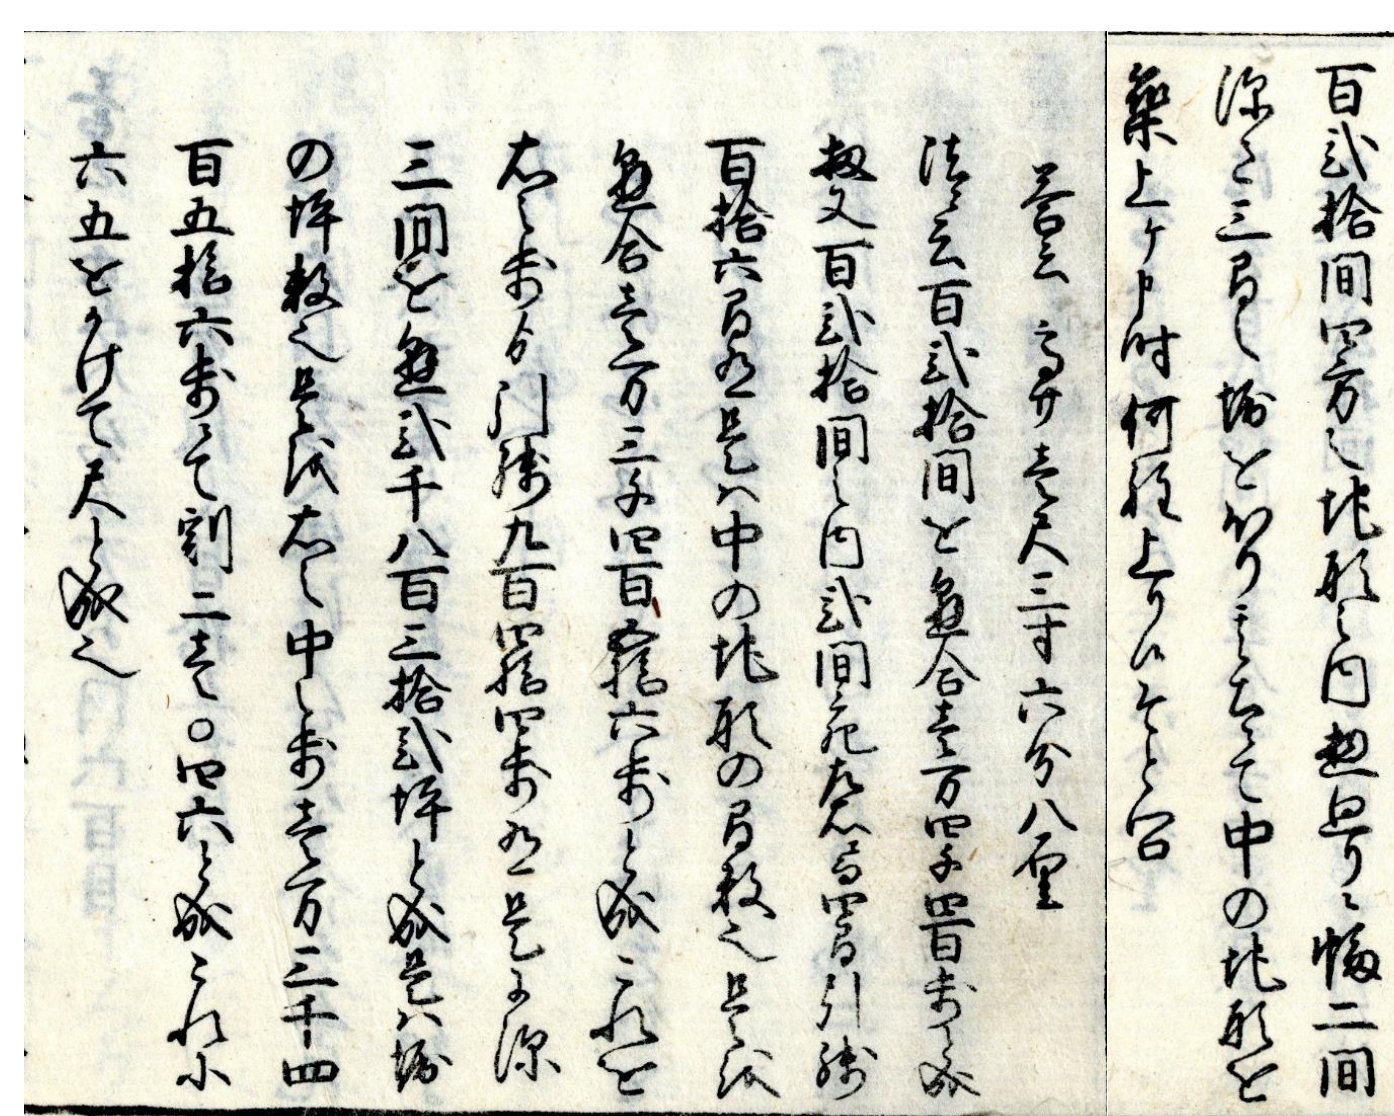 百弐拾間四方之地形之内惣周リニ幅二間
深さ三間之堀をほり其土にて中の地形を
築上ケ申時何程上リ候そと問
答云 高サ壱尺三寸六分八厘
法ニ云百弐拾間を懸合壱万四千四百歩と成
扨又百弐拾間之内弐間宛左右四間引残
百拾六間有是ハ中の地形の間数也是を
懸合壱万三千四百五拾六歩と成これを
右之歩より引残九百四拾四歩有是に深
三間を懸弐千八百三拾弐坪と成是ハ堀
の坪数也是を右之中之歩壱万三千四
百五拾六歩にて割二壱〇四六と成これに
六五をかけて尺と成也